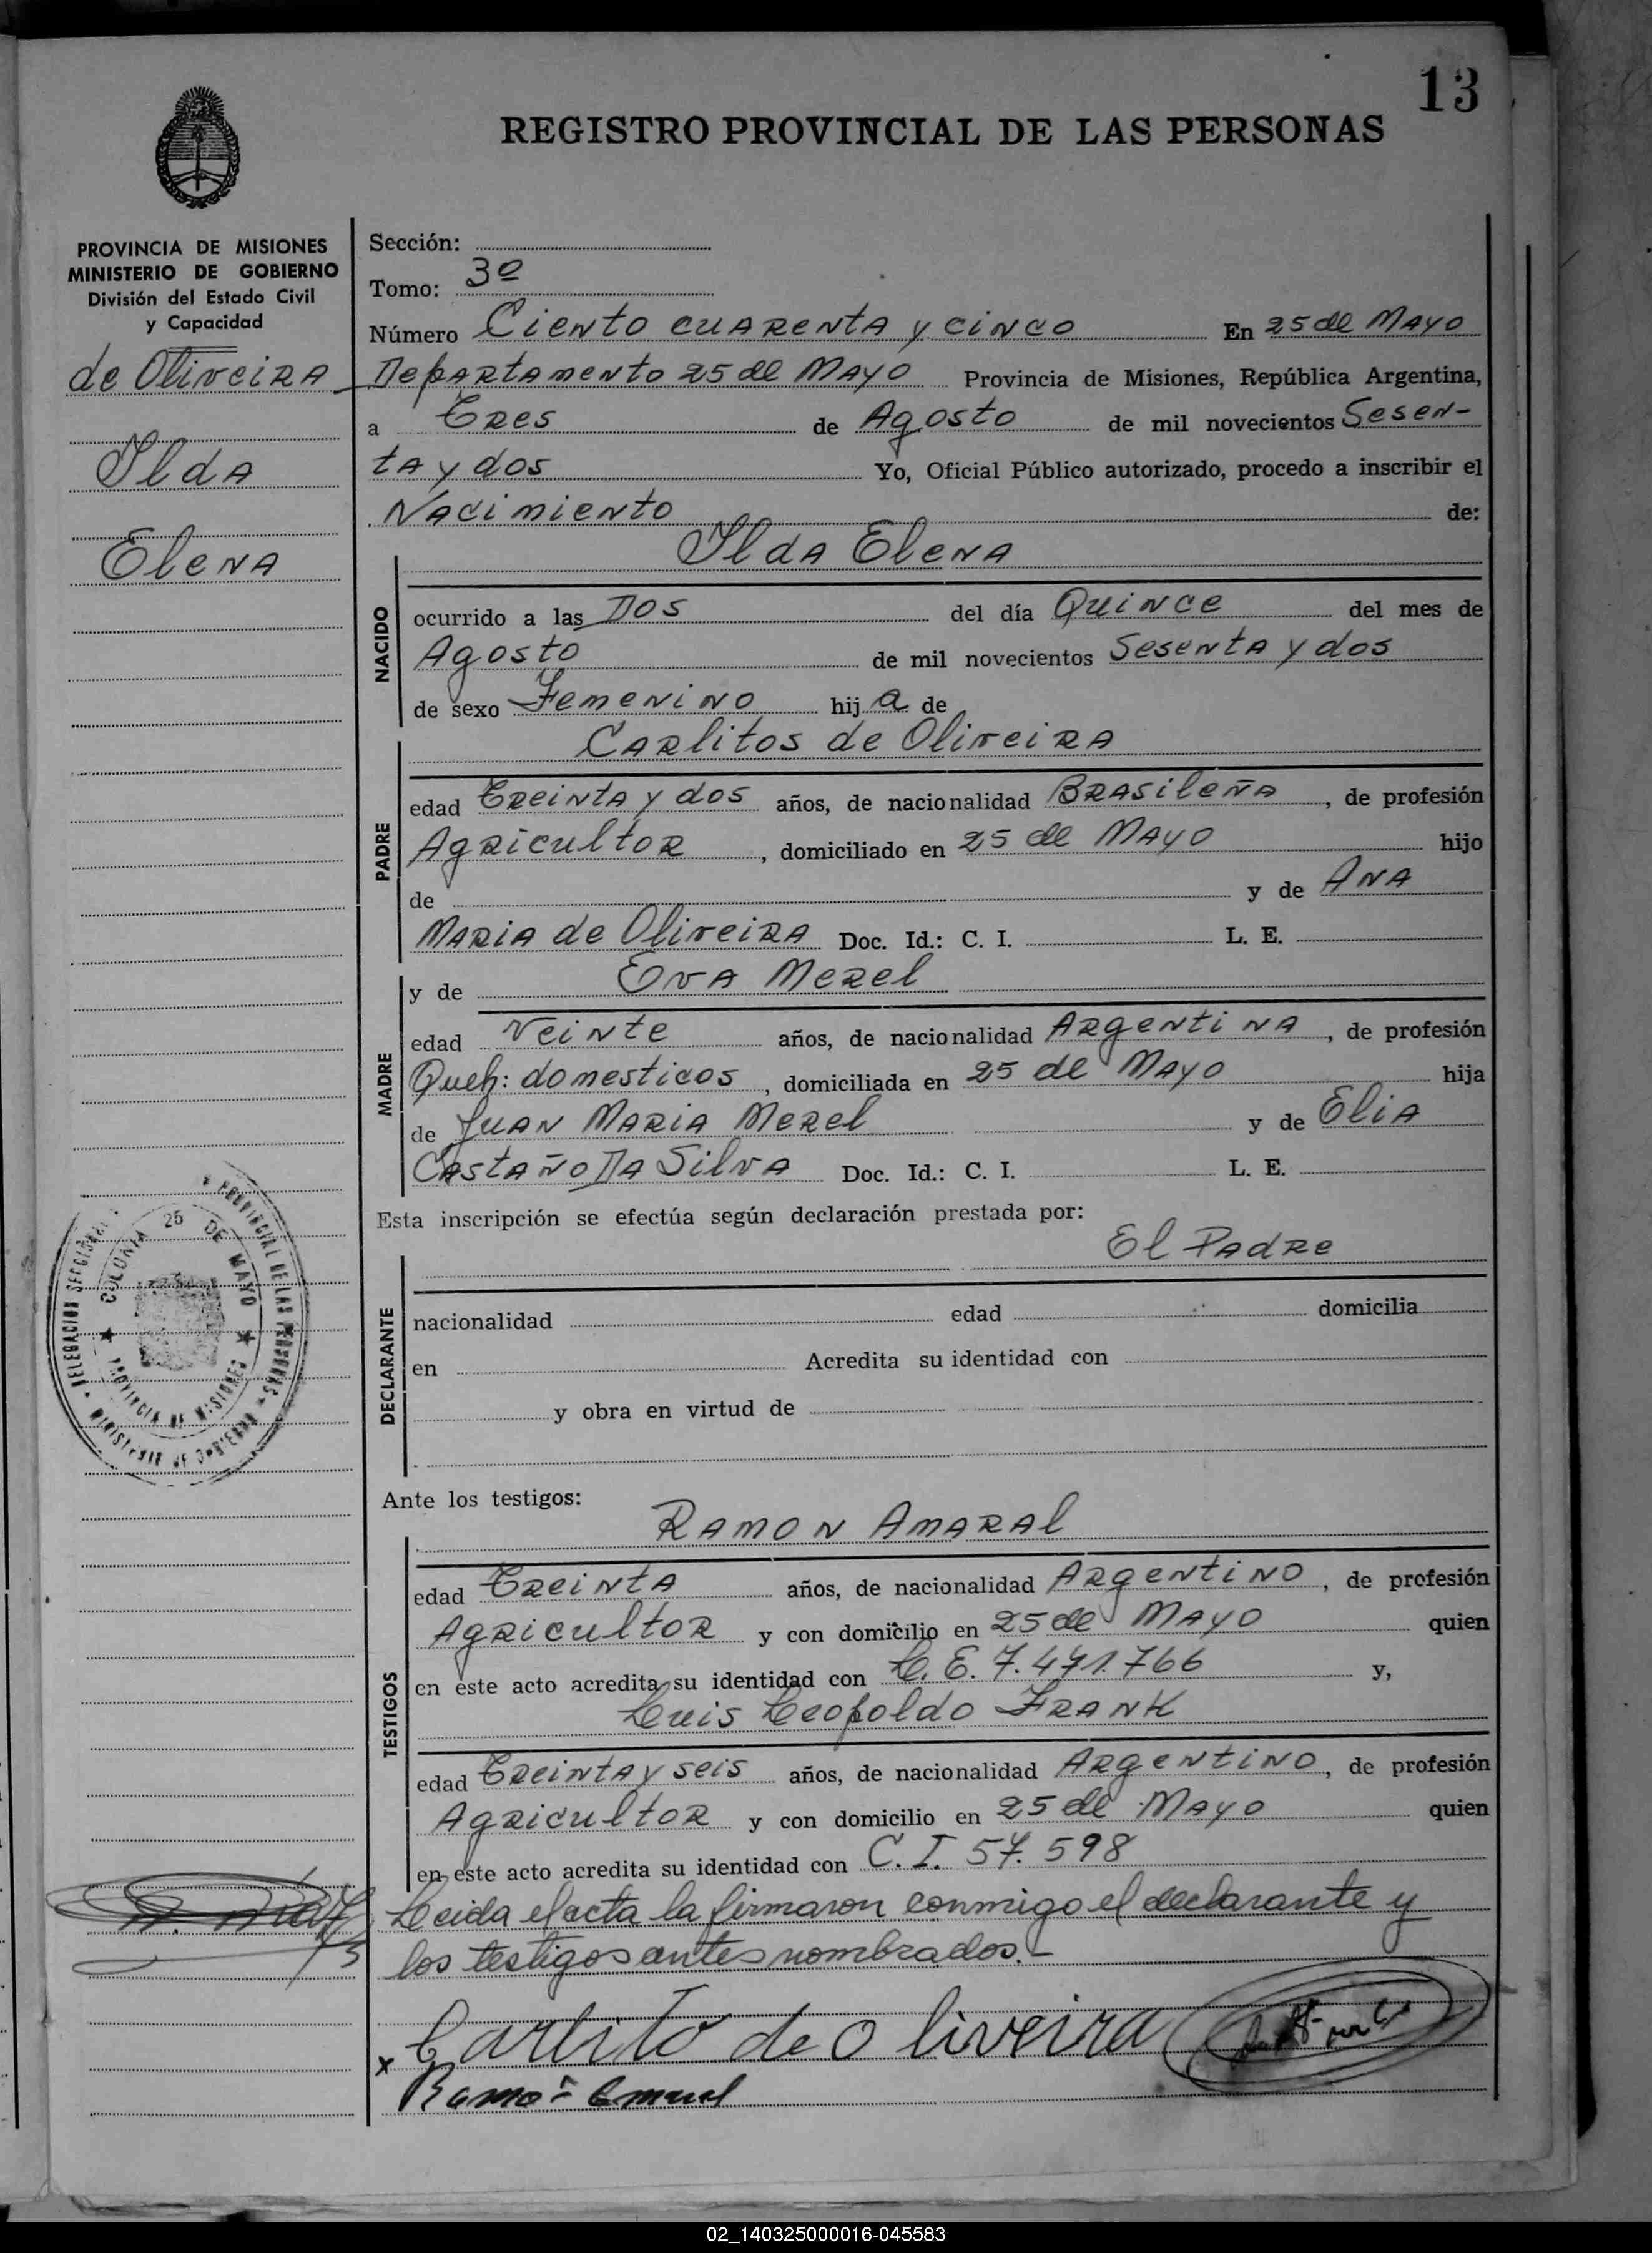 13
REGISTRO PROVINCIAL DE LAS PERSONAS
PROVINCIA DE MISIONES
MINISTERIO DE GOBIERNO
División del Estado Civil
y Capacidad
de Oliveira
Ilda
Elena
Sección:
Tomo: 3º
Número Ciento cuarenta y cinco En 25 de Mayo
Departamento 25 de Mayo Provincia de Misiones, República Argentina,
a Tres de Agosto de mil novecientos Sesen-
ta y dos Yo, Oficial Público autorizado, procedo a inscribir el
Nacimiento de:
Ilda Elena
NACIDO
ocurrido a las Dos del día Quince del mes de
Agosto de mil novecientos Sesenta y dos
de sexo Femenino hija de
Carlitos de Oliveira
PADRE
edad Treinta y dos años, de nacionalidad Brasileña, de profesión
Agricultor, domiciliado en 25 de Mayo hijo
de y de Ana
Maria de Oliveira Doc. Id.: C. I. L. E.
y de Eva Merel
MADRE
edad Veinte años, de nacionalidad Argentina, de profesión
Queh: domesticos, domiciliada en 25 de Mayo hija
de Juan Maria Merel y de Elia
Castaño Da Silva Doc. Id.: C. I. L. E.
Esta inscripción se efectúa según declaración prestada por:
El Padre
DECLARANTE
nacionalidad edad domicilia
en Acredita su identidad con
y obra en virtud de
Ante los testigos:
Ramon Amaral
TESTIGOS
edad Treinta años, de nacionalidad Argentino, de profesión
Agricultor y con domicilio en 25 de Mayo quien
en este acto acredita su identidad con L. E. 7.471.766 y,
Luis Leopoldo Frank
edad Treinta y seis años, de nacionalidad Argentino, de profesión
Agricultor y con domicilio en 25 de Mayo quien
en este acto acredita su identidad con C. I. 57.598
Leida el acta la firmaron conmigo el declarante y
los testigos antes nombrados.-
Carlito de Oliveira
x Ramon Amaral
DELEGACION SECCIONAL
PROVINCIAL DE LAS PERSONAS
MINISTERIO DE GOBIERNO
COLONIA 25 DE MAYO
PROVINCIA DE MISIONES
02_140325000016-045583